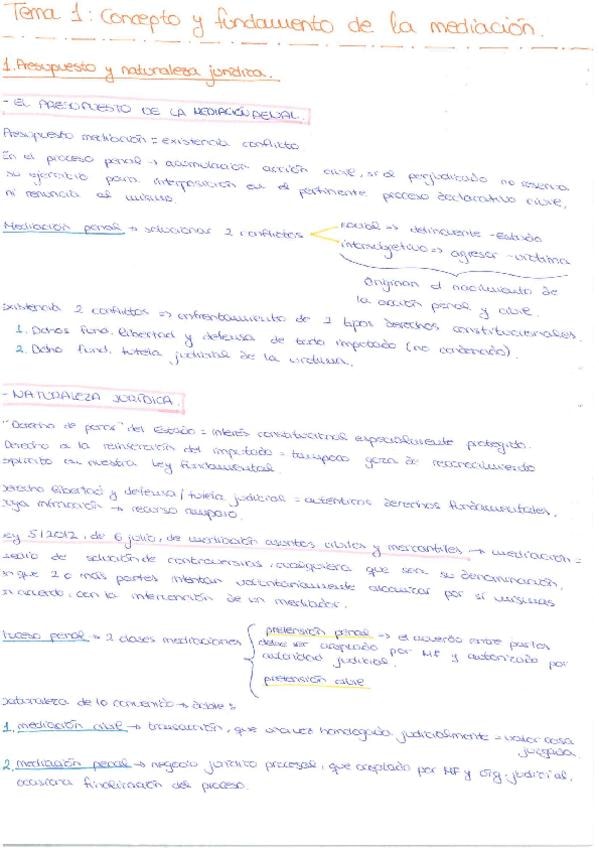 Tema 1: Concepto y fundamento de la mediación.
1. Presupuesto y naturaleza jurídica.
- EL PRESUPUESTO DE LA MEDIACIÓN PENAL.
Presupuesto mediación = existencia conflicto
En el proceso penal → acumulación acción civil, si el perjudicado no reserva
su ejercicio para interposición en el pertinente proceso declarativo civil,
ni renuncia al mismo.
Mediación penal → solucionar 2 conflictos
social => delincuente - Estado
intersubjetivo => agresor - víctima
Originan el nacimiento de
la acción penal y civil.
existencia 2 conflictos => enfrentamiento de 2 tipos derechos constitucionales.
1. Dchos fund. libertad y defensa de todo imputado (no condenado).
2. Dcho fund. tutela judicial de la víctima.
- NATURALEZA JURÍDICA.
"Derecho de penar" del Estado = interés constitucional especialmente protegido.
Derecho a la reinserción del imputado = tampoco goza de reconocimiento
explícito en nuestra Ley fundamental.
Derecho libertad y defensa / tutela judicial = auténticos derechos fundamentales,
cuya infracción → recurso amparo.
ey 5/2012, de 6 julio, de mediación asuntos civiles y mercantiles → mediación =
medio de solución de controversias, cualquiera que sea su denominación,
en que 2 o más partes intentan voluntariamente alcanzar por sí mismas
un acuerdo, con la intervención de un mediador.
Proceso penal = 2 clases mediaciones
pretensión penal → el acuerdo entre partes
debe ser aceptado por MF y autorizado por
autoridad judicial.
pretensión civil
Naturaleza de lo convenido → doble:
1. mediación civil → transacción, que una vez homologada judicialmente = valor cosa
juzgada.
2. mediación penal → negocio jurídico procesal, que aceptado por MF y órg. judicial,
ocasiona finalización del proceso.